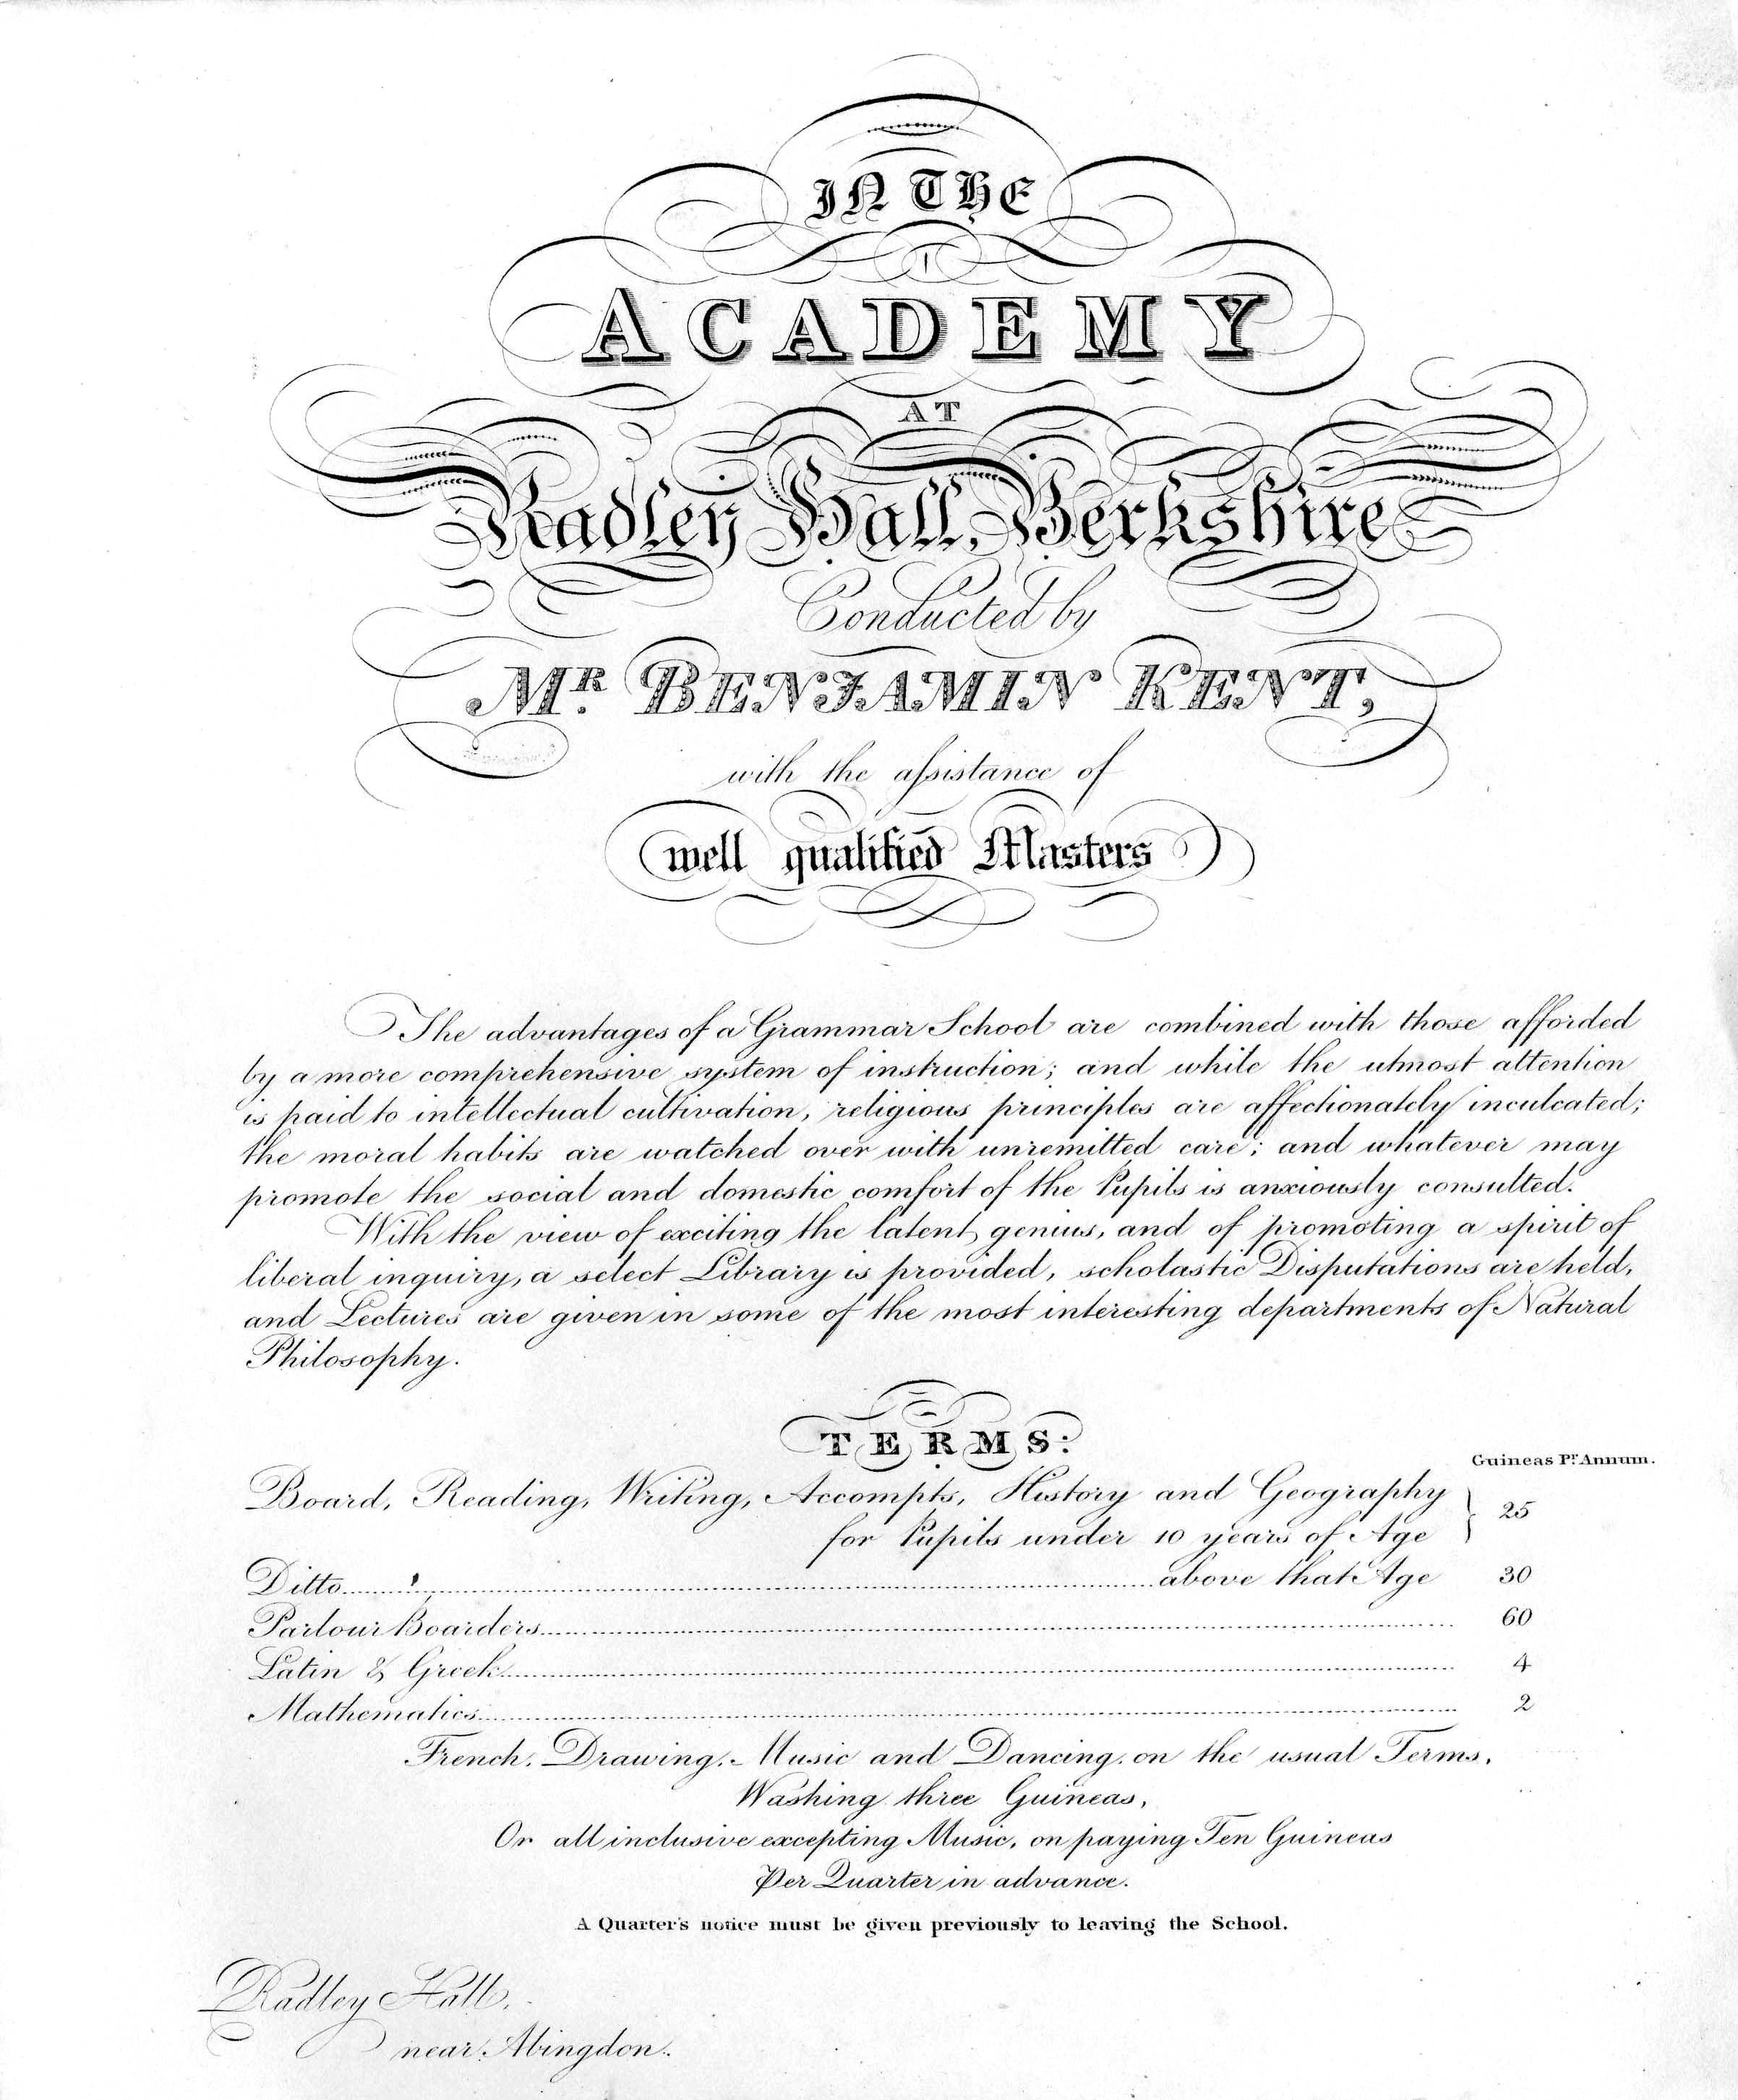 IN THE
ACADEMY
AT
Radley Hall, Berkshire
Conducted by
MR. BENJAMIN KENT,
with the assistance of
well qualified Masters
The advantages of a Grammar School are combined with those afforded
by a more comprehensive system of instruction; and while the utmost attention
is paid to intellectual cultivation, religious principles are affectionately inculcated;
the moral habits are watched over with unremitted care; and whatever may
promote the social and domestic comfort of the Pupils is anxiously consulted.
With the view of exciting the latent genius, and of promoting a spirit of
liberal inquiry, a select Library is provided, scholastic Disputations are held,
and Lectures are given in some of the most interesting departments of Natural
Philosophy.
TERMS:
Guineas Pr. Annum.
Board, Reading, Writing, Accompts, History and Geography
for Pupils under 10 years of Age } 25
Ditto above that Age 30
Parlour Boarders 60
Latin & Greek 4
Mathematics 2
French, Drawing, Music and Dancing, on the usual Terms,
Washing three Guineas,
Or all inclusive excepting Music, on paying Ten Guineas
Per Quarter in advance.
A Quarter's notice must be given previously to leaving the School.
Radley Hall,
near Abingdon.